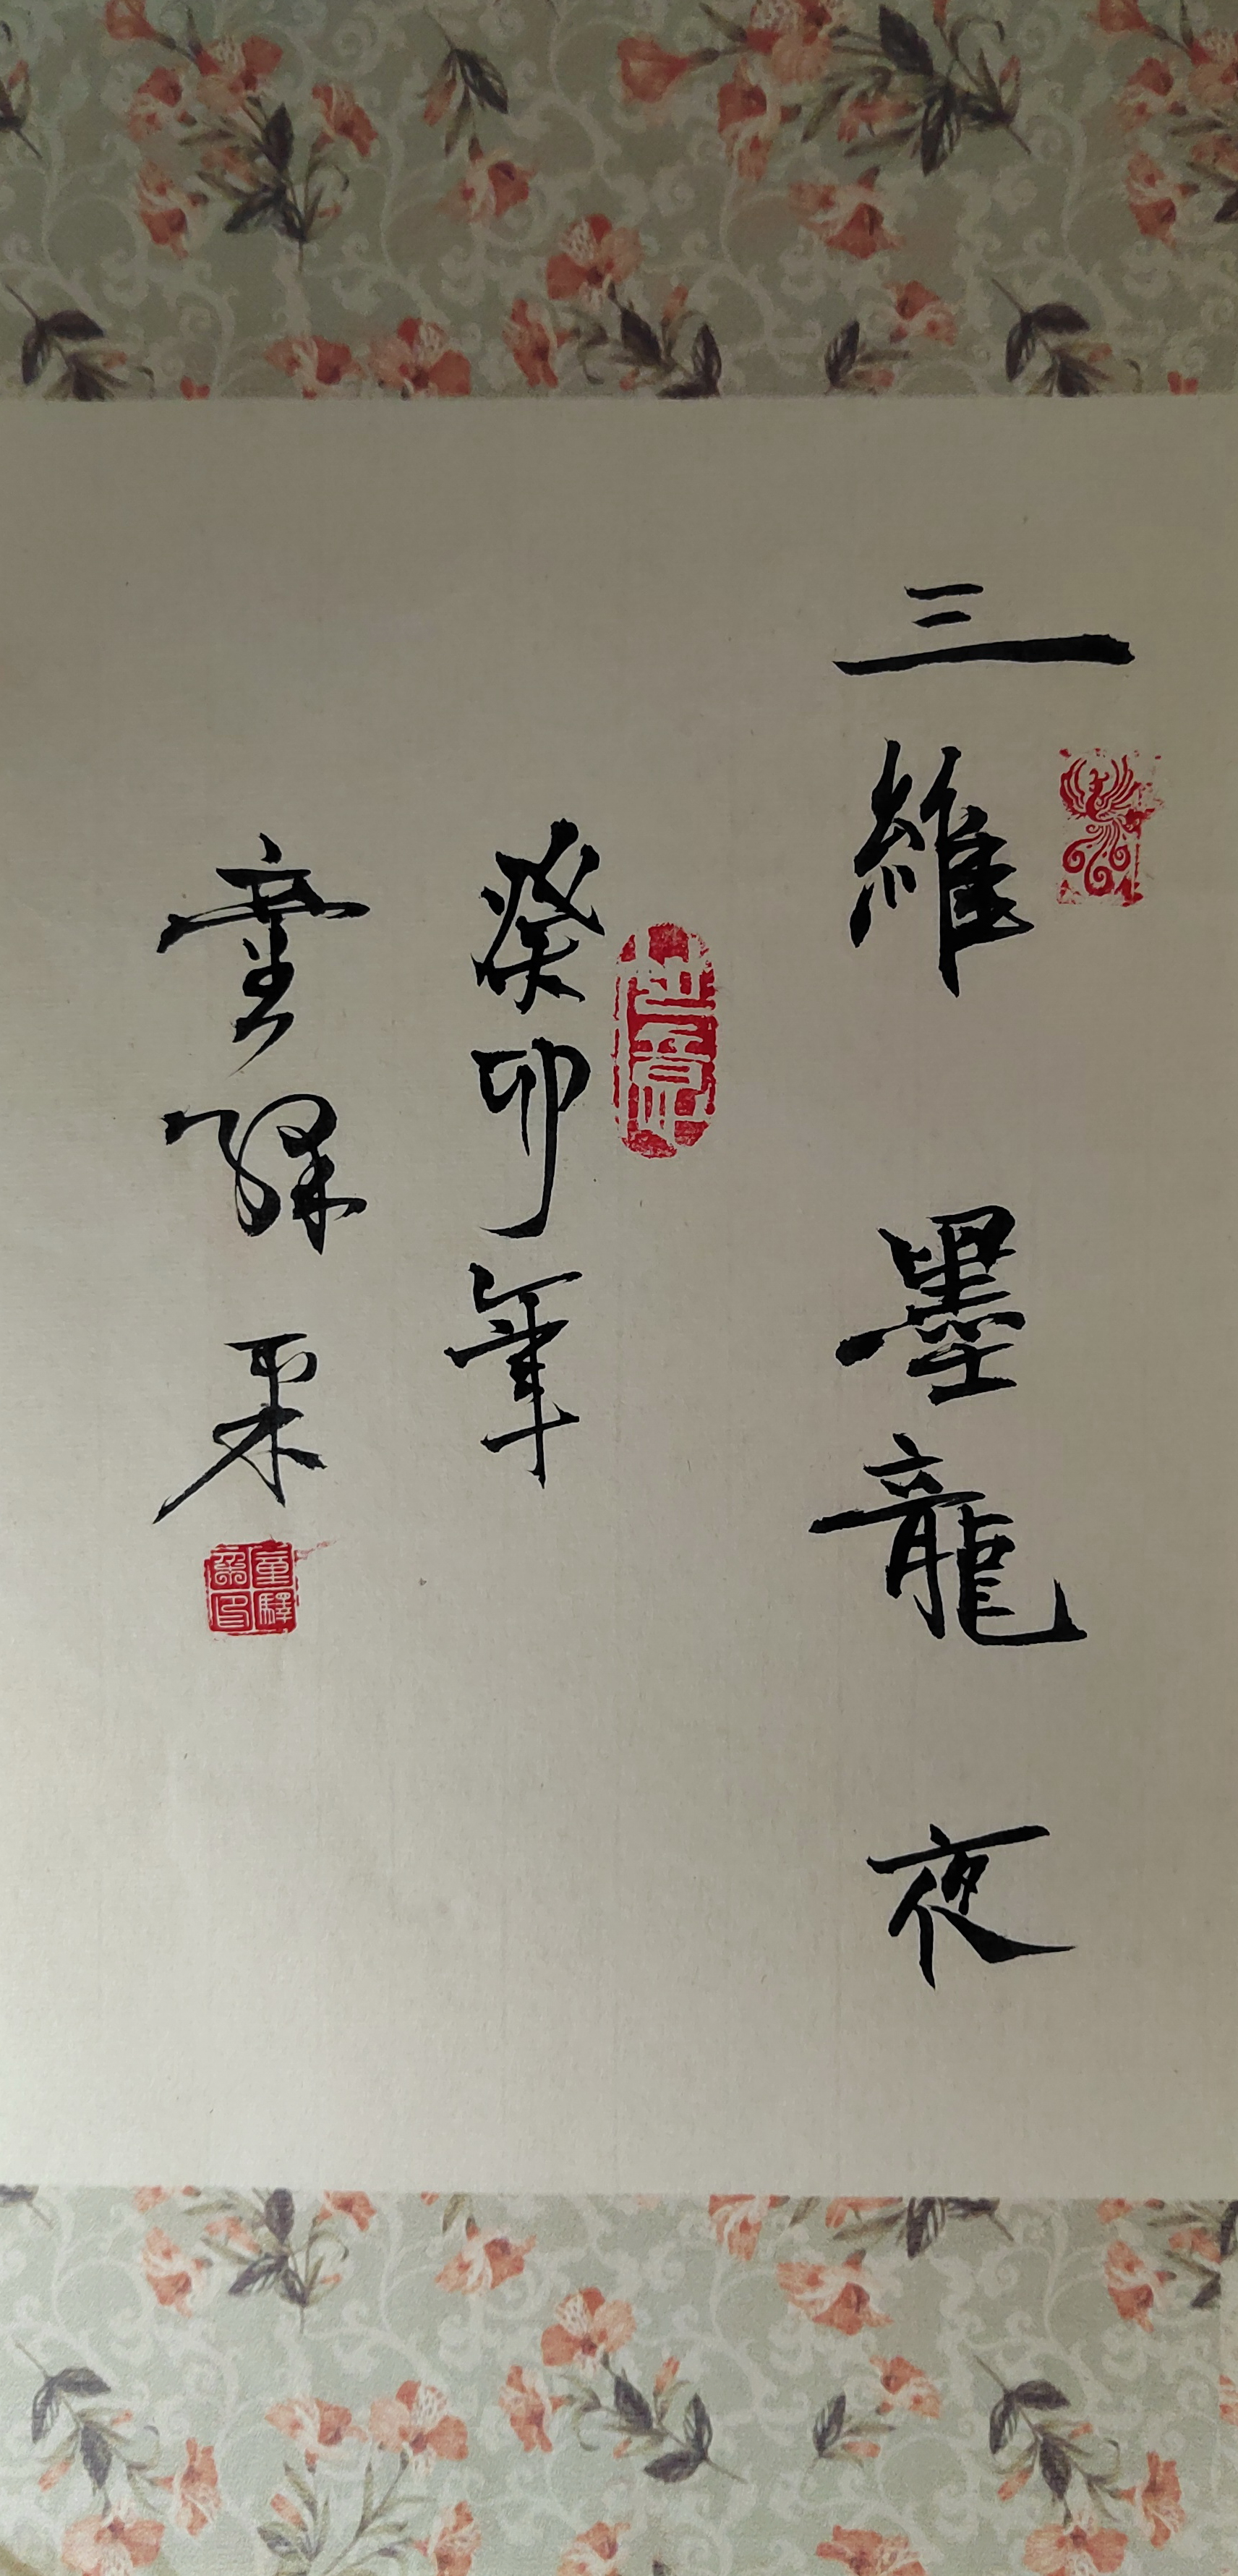 三維 墨龍 夜
癸卯年
童驛采
童驛